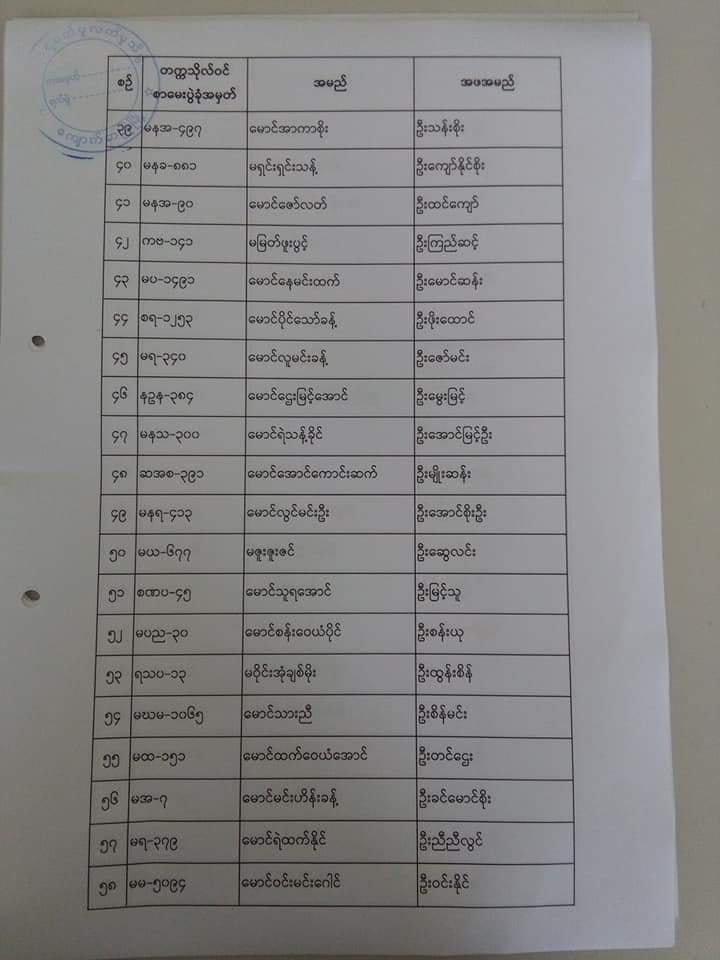 စဉ် တက္ကသိုလ်ဝင် စာမေးပွဲခုံအမှတ် အမည် အဖအမည်
၃၉ မနအ-၄၉၇ မောင်အာကာစိုး ဦးသန်းစိုး
၄၀ မနခ-၈၈၁ မရှင်းရှင်းသန့် ဦးကျော်နိုင်စိုး
၄၁ မနအ-၉၀ မောင်ဇော်လတ် ဦးထင်ကျော်
၄၂ ကဗ-၁၄၁ မမြတ်ဖူးပွင့် ဦးကြည်ဆင့်
၄၃ မပ-၁၄၉၁ မောင်နေမင်းထက် ဦးမောင်ဆန်း
၄၄ စရ-၁၂၅၃ မောင်ပိုင်သော်ခန့် ဦးဖိုးထောင်
၄၅ မရ-၃၄၀ မောင်လူမင်းခန့် ဦးဇော်မင်း
၄၆ နဥန-၃၈၄ မောင်ဌေးမြင့်အောင် ဦးမွေးမြင့်
၄၇ မနသ-၃၀၀ မောင်ရဲသန့်ခိုင် ဦးအောင်မြင့်ဦး
၄၈ ဆအစ-၃၉၁ မောင်အောင်ကောင်းဆက် ဦးမျိုးဆန်း
၄၉ မနရ-၄၁၃ မောင်လွင်မင်းဦး ဦးအောင်စိုးဦး
၅၀ မယ-၆၇၇ မဇူးဇူးဇင် ဦးဆွေလင်း
၅၁ စဏပ-၄၅ မောင်သူရအောင် ဦးမြင့်သူ
၅၂ မပည-၃၀ မောင်စန်းဝေယံပိုင် ဦးစန်းယု
၅၃ ရသပ-၁၃ မဝိုင်းအုံချစ်မိုး ဦးထွန်းစိန်
၅၄ မဃမ-၁၀၆၅ မောင်သားညီ ဦးစိန်မင်း
၅၅ မထ-၁၅၁ မောင်ထက်ဝေယံအောင် ဦးတင်ဌေး
၅၆ မအ-၇ မောင်မင်းဟိန်းခန့် ဦးခင်မောင်စိုး
၅၇ မရ-၃၇၉ မောင်ရဲထက်နိုင် ဦးညီညီလွင်
၅၈ မမ-၅၀၉၄ မောင်ဝင်းမင်းဂေါင် ဦးဝင်းနိုင်